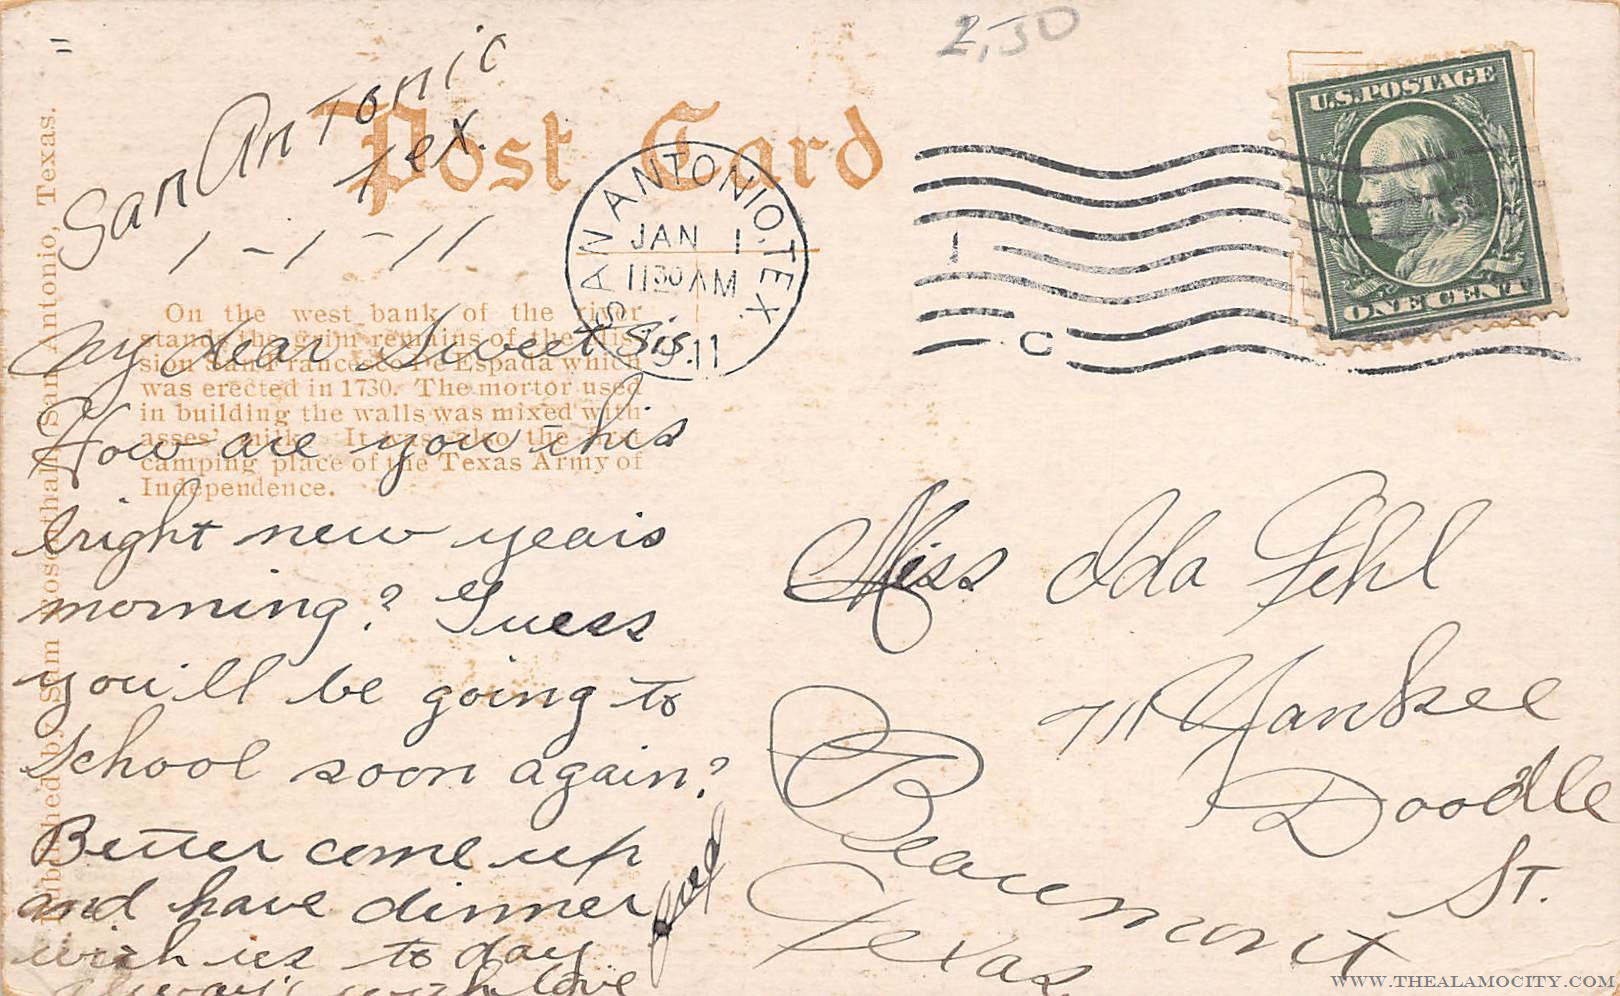 2,50
San Antonio
Tex.
1-1-11
Post Card
SAN ANTONIO, TEX.
JAN 1
11 30 AM
11
1
C
U.S. POSTAGE
ONE CENT
Published by Sam Rosenthall, San Antonio, Texas.
On the west bank of the river
stands the grim remains of the Mis-
sion San Francesco De Espada which
was erected in 1730. The mortor used
in building the walls was mixed with
asses' milk. It was also the first
camping place of the Texas Army of
Independence.
My dear Sweet Sis.
How are you this
bright new years
morning? Guess
you'll be going to
School soon again?
Better come up
and have dinner
with us to day
always with love
Miss Ida Fehl
711 Yankee
Doodle
St.
Beaumont
Texas.
WWW.THEALAMOCITY.COM